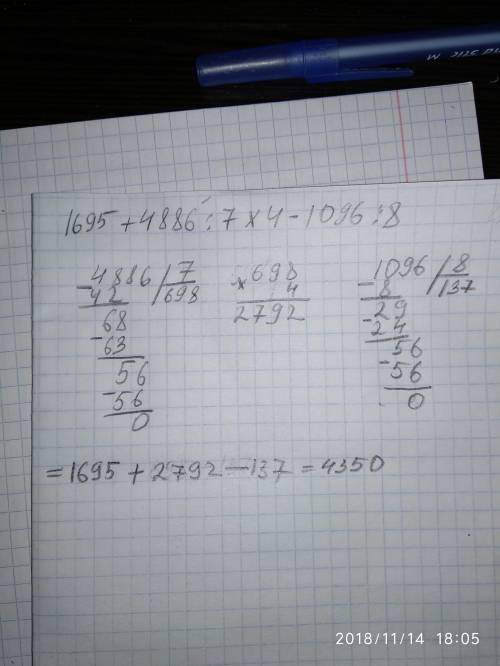 1695 + 4886 : 7 x 4 - 1096 : 8
4886 / 7
- 42 / 698
68
- 63
56
- 56
0
x 698
4
2792
1096 / 8
- 8 / 137
29
- 24
56
- 56
0
= 1695 + 2792 - 137 = 4350
2018/11/14 18:05